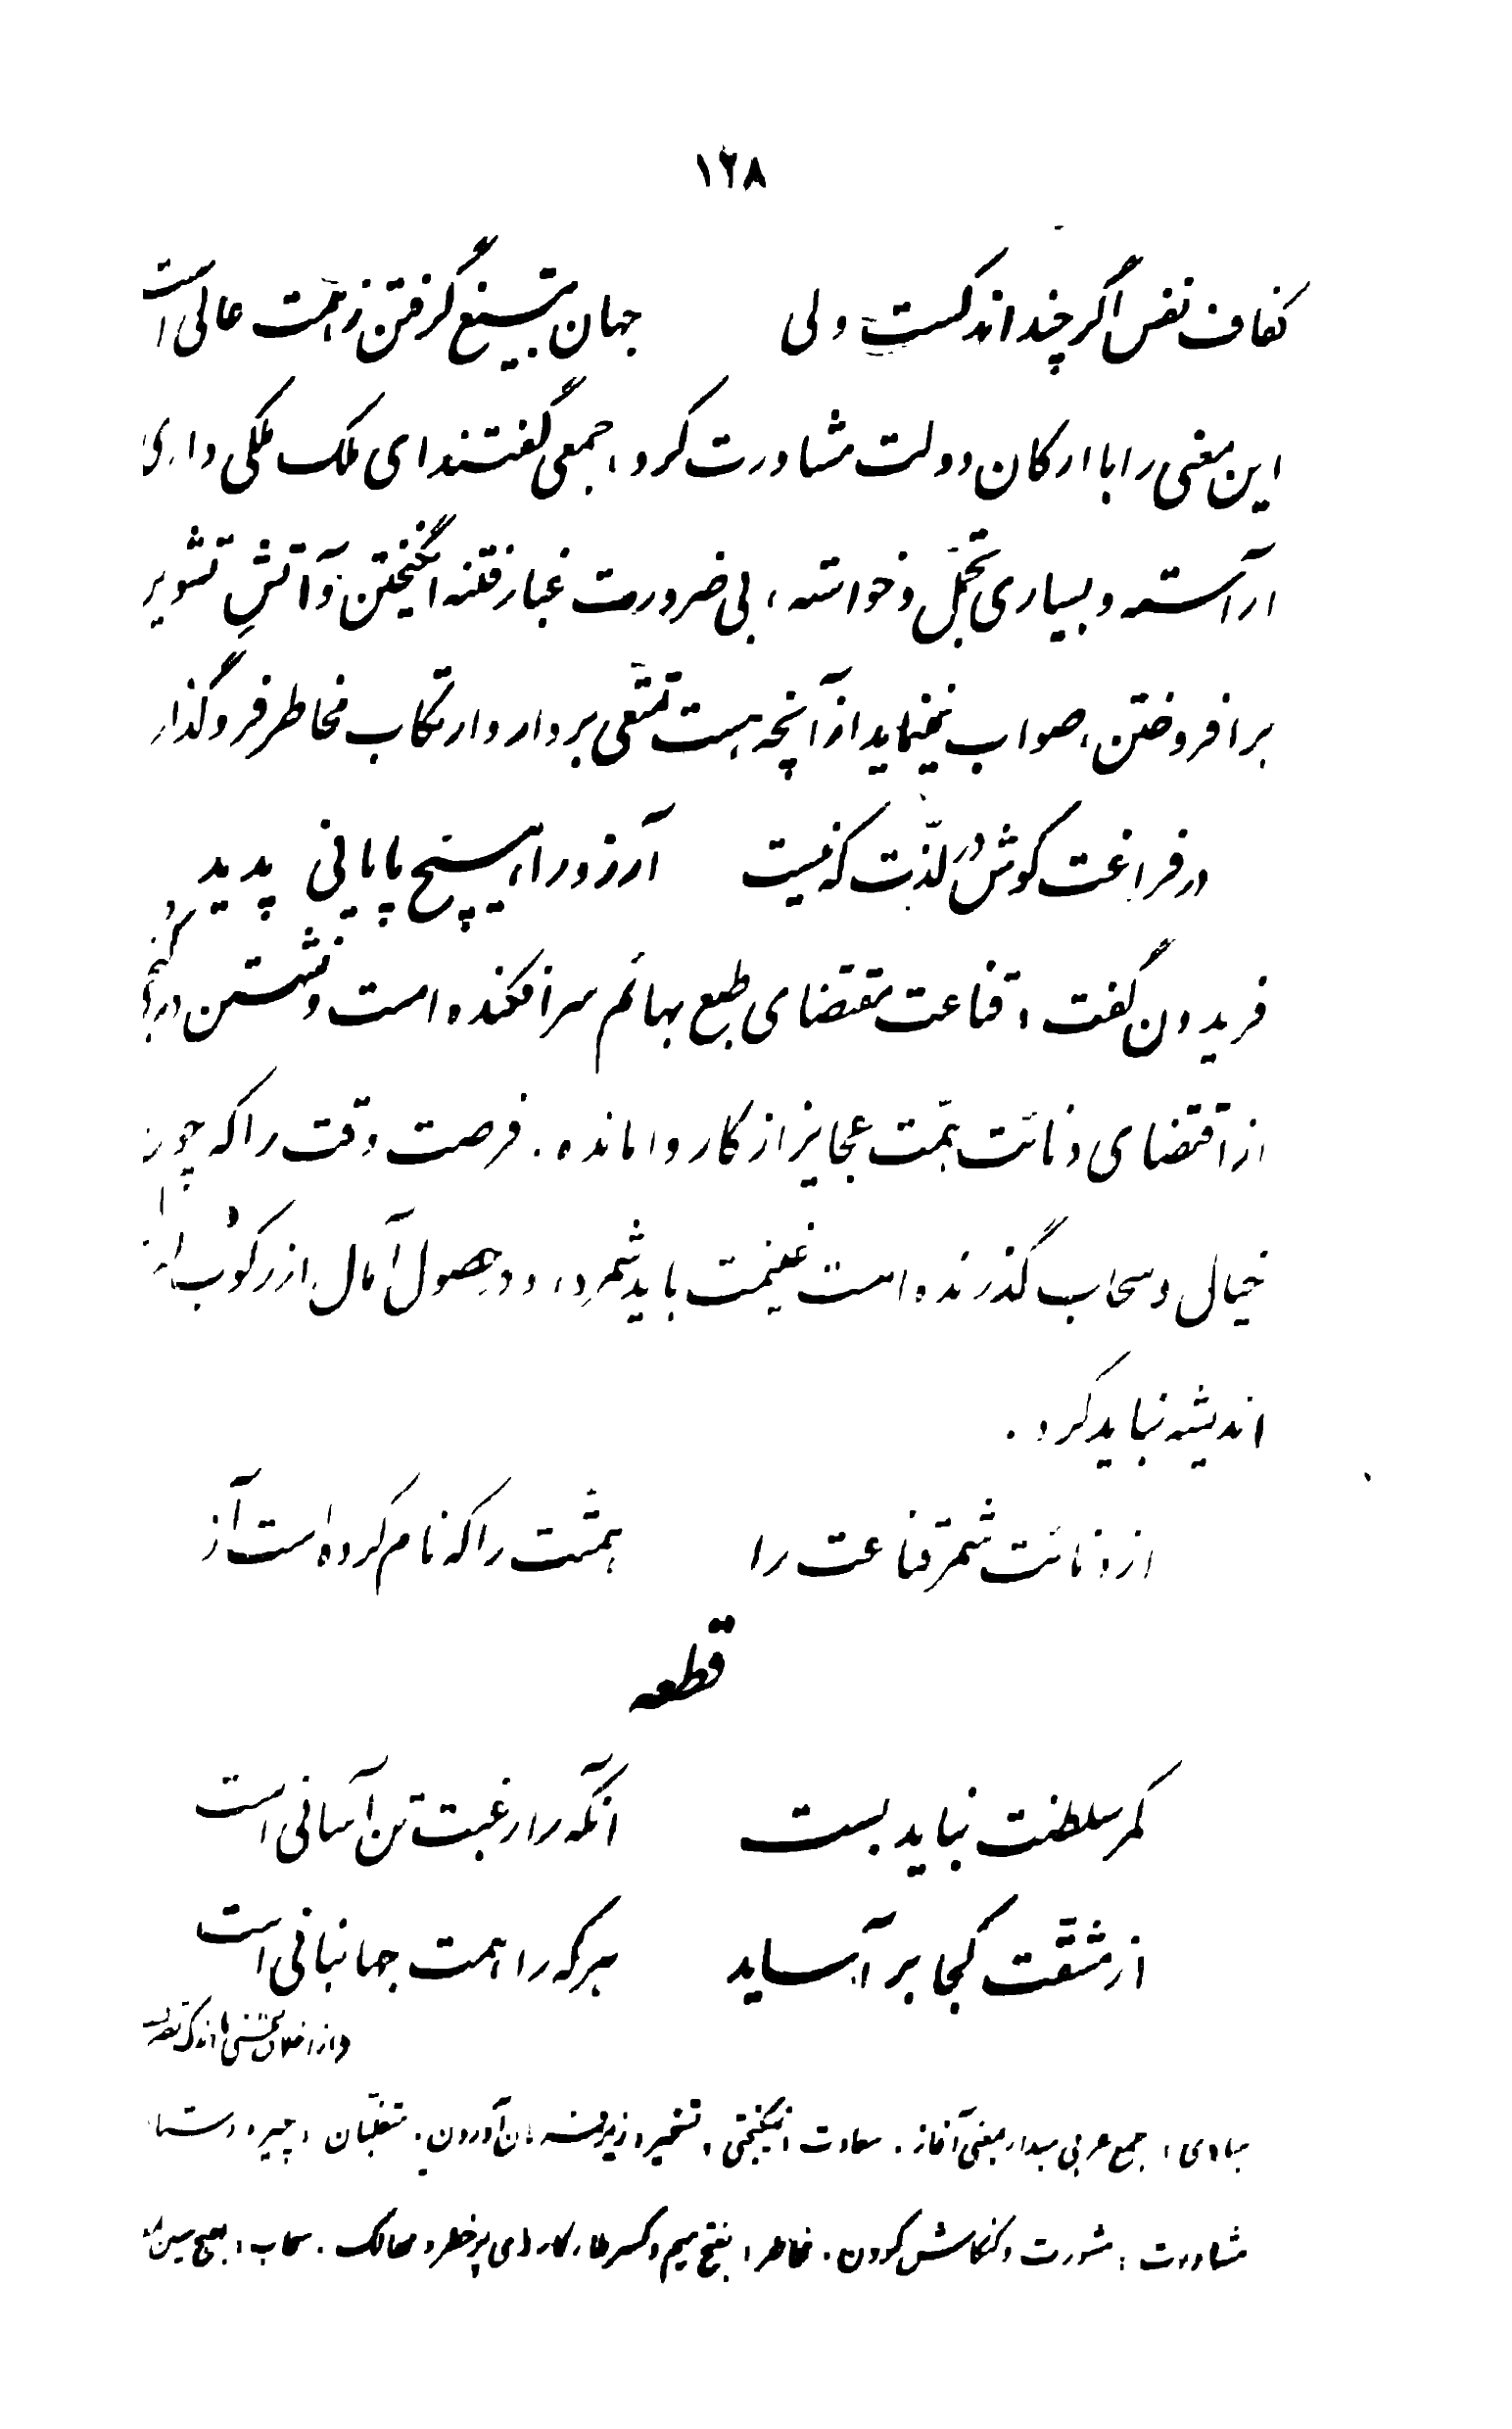 ۱۲۸
کفاف نفس اگر چند اندکست ولی جهان بتیغ گرفتن ز همت عالی است
این معنی را با ارکان دولت مشاورت کرد، جمعی گفتند ای ملک ملکی داری
آراسته و بسیاری تجمّل و خواسته، بی ضرورت غبار فتنه انگیختن و آتشِ تشویر
برافروختن، صواب نمینماید از آنچه هست تمتّعی بردار و ارتکاب مخاطر فروگذار
در فراغت کوش و در لذّت که نیست آرزو را هیچ پایانی پدید
فریدون گفت، قناعت مقتضای طبع بهائم سرافکنده است و نشستن در کنج
از اقتضای دنائت همّت عجایز از کار وامانده. فرصت وقت را که چون
خیالی و سحاب گذرنده است غنیمت باید شمرد، و در حصول آمال از رکوب
اندیشه نباید کرد.
از دنائت شمر قناعت را همّتت را که نام کرده است آز
قطعه
کمر سلطنت نباید بست آنکه را رغبت تن آسانی است
از مشقّت کجا بر آساید هرکه را همت جهانبانی است
مبادی، جمع عربی مبدا، بمعنی آغاز. سعادت، نیکبختی، تسخیر، زیر فرمان آوردن. متغلّبان، چیره دستان
مشاورت، مشورت و کنکاش کردن. مخاطر، بفتح میم و کسر طاء، کارهای پر خطر و مهالک. سحاب، بفتح سین